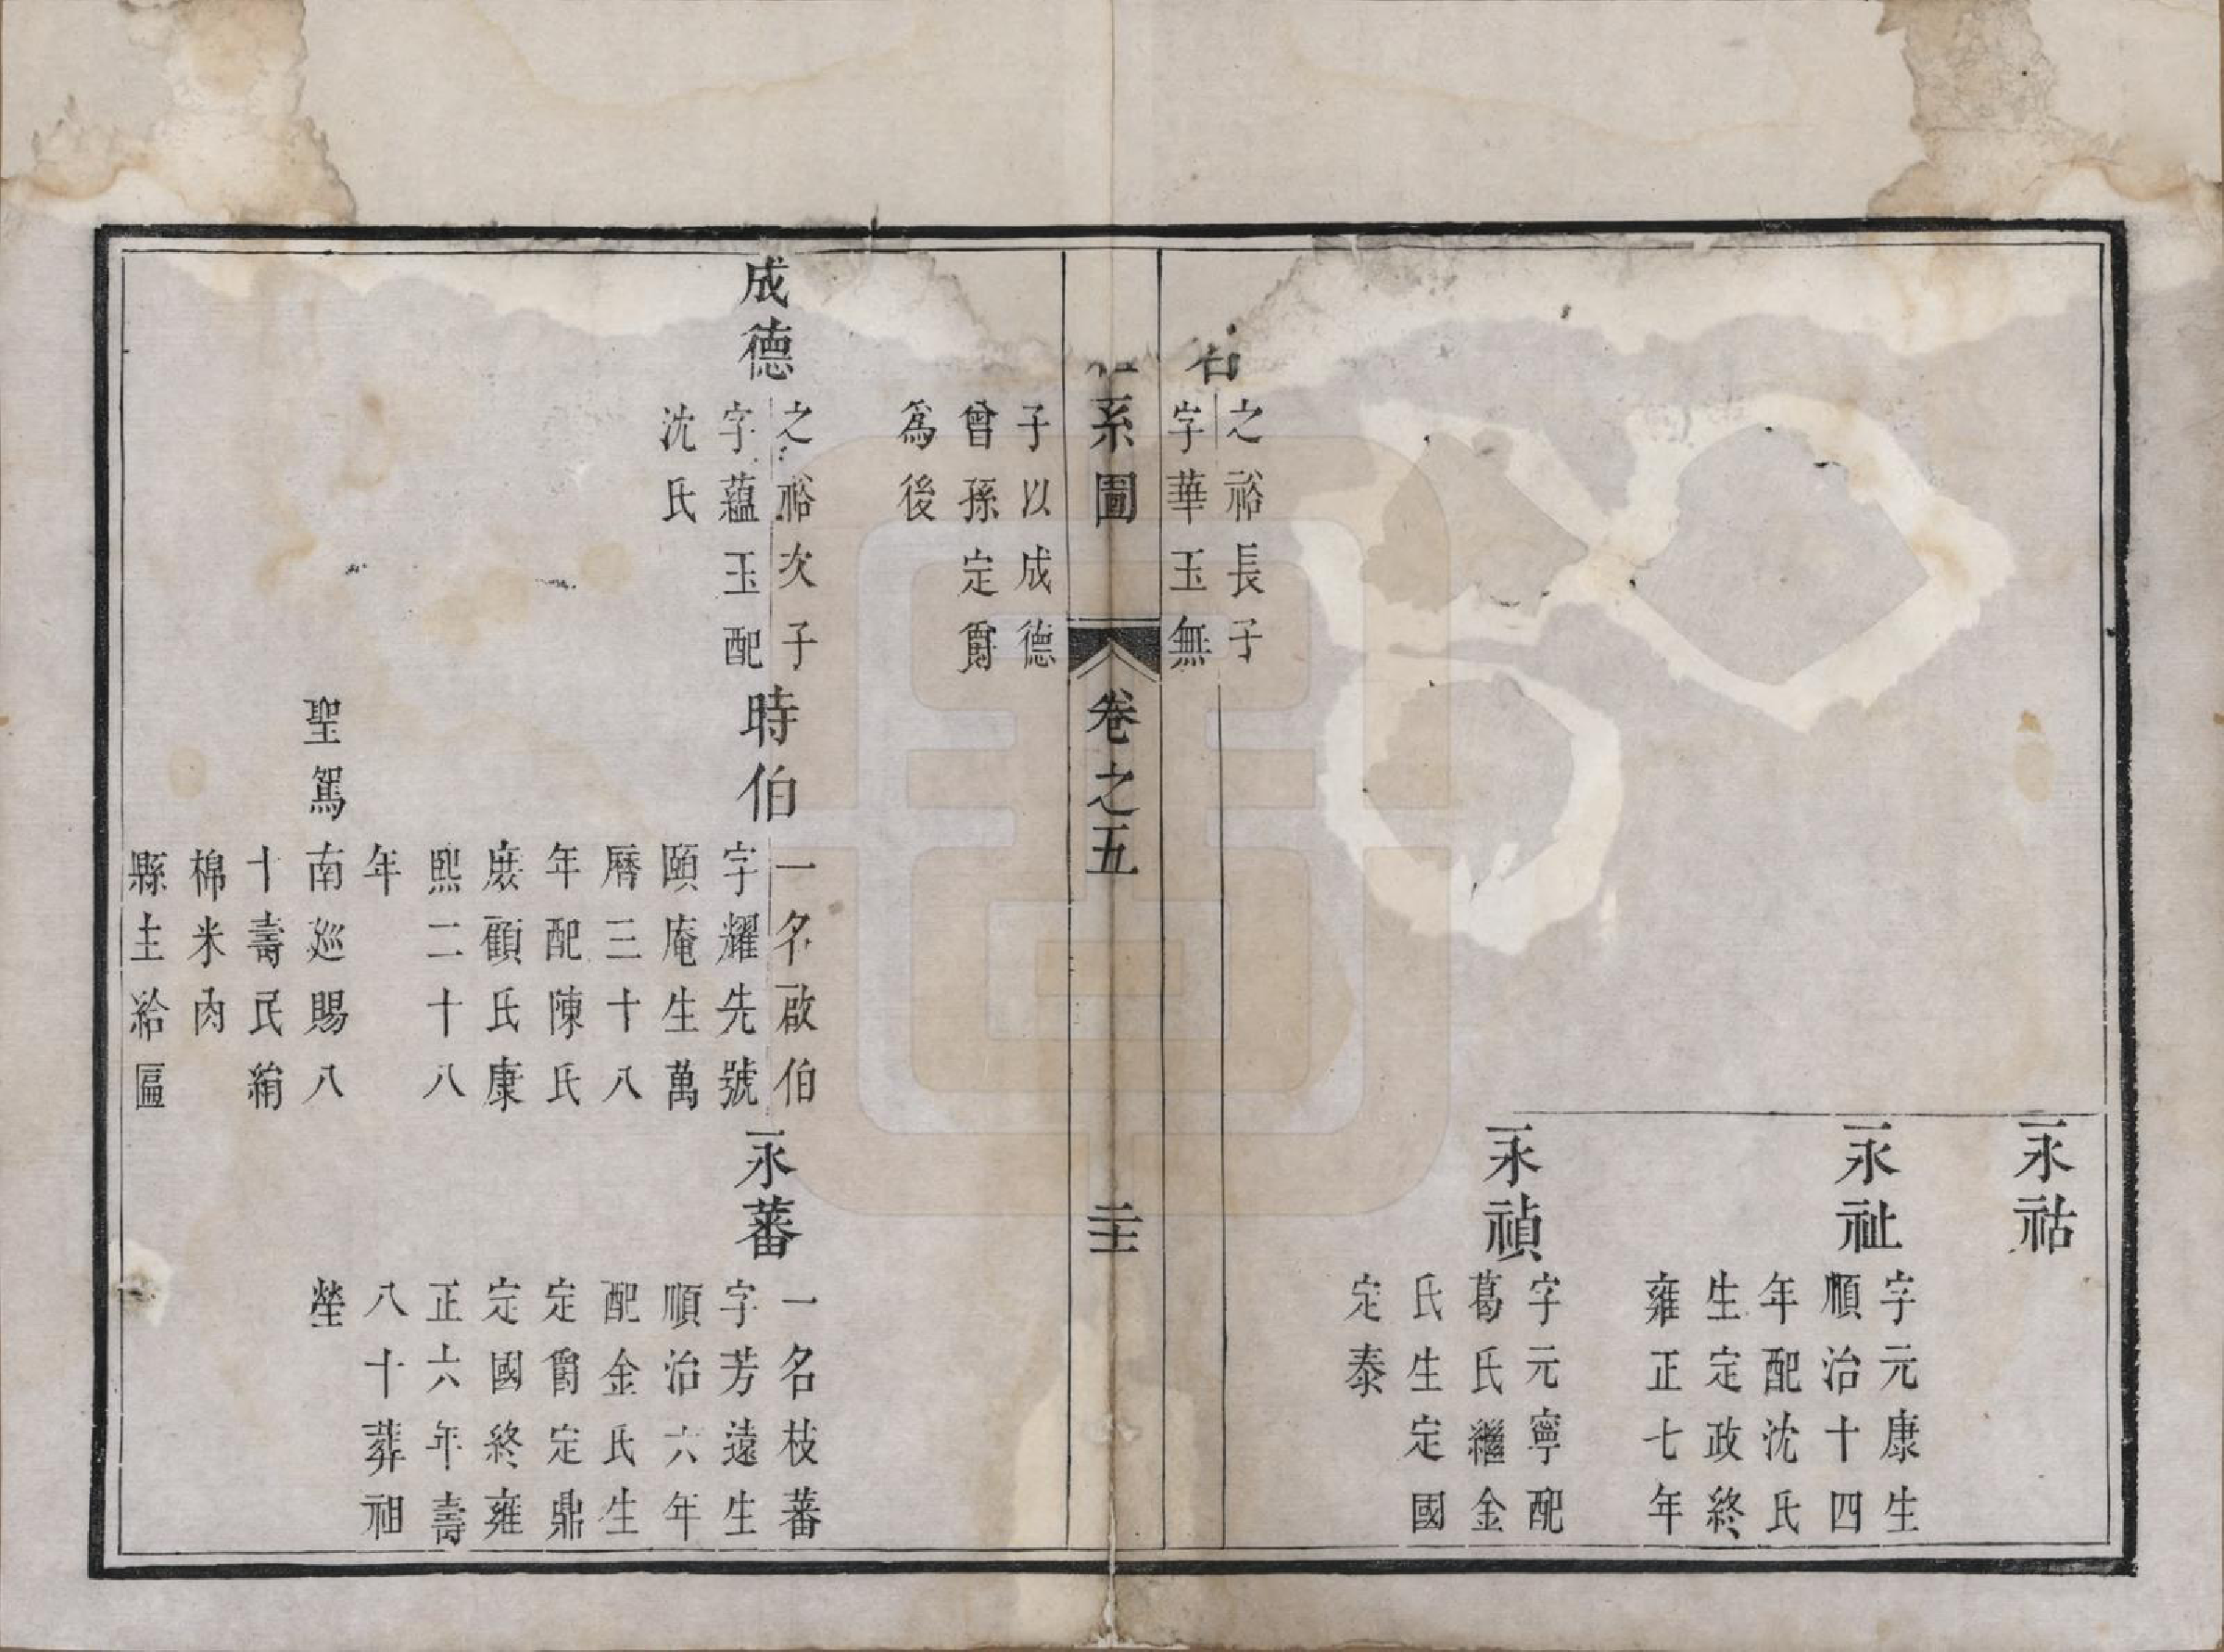 永祜
永祉
字元康生
順治十四
年配沈氏
生定政終
雍正七年
永禎
字元寧配
葛氏繼金
氏生定國
定泰
之裕長子
字華玉無
系圖
卷之五
子以成德
曾孫定爵
爲後
成德
之裕次子
字蘊玉配
沈氏
時伯
一名啟伯
字耀先號
頤庵生萬
曆三十八
年配陳氏
庶顧氏康
熙二十八
年
聖駕南廵賜八
十壽民絹
棉米肉
縣主給匾
永蕃
一名枝蕃
字芳遠生
順治六年
配金氏生
定爵定鼎
定國終雍
正六年壽
八十葬祖
塋